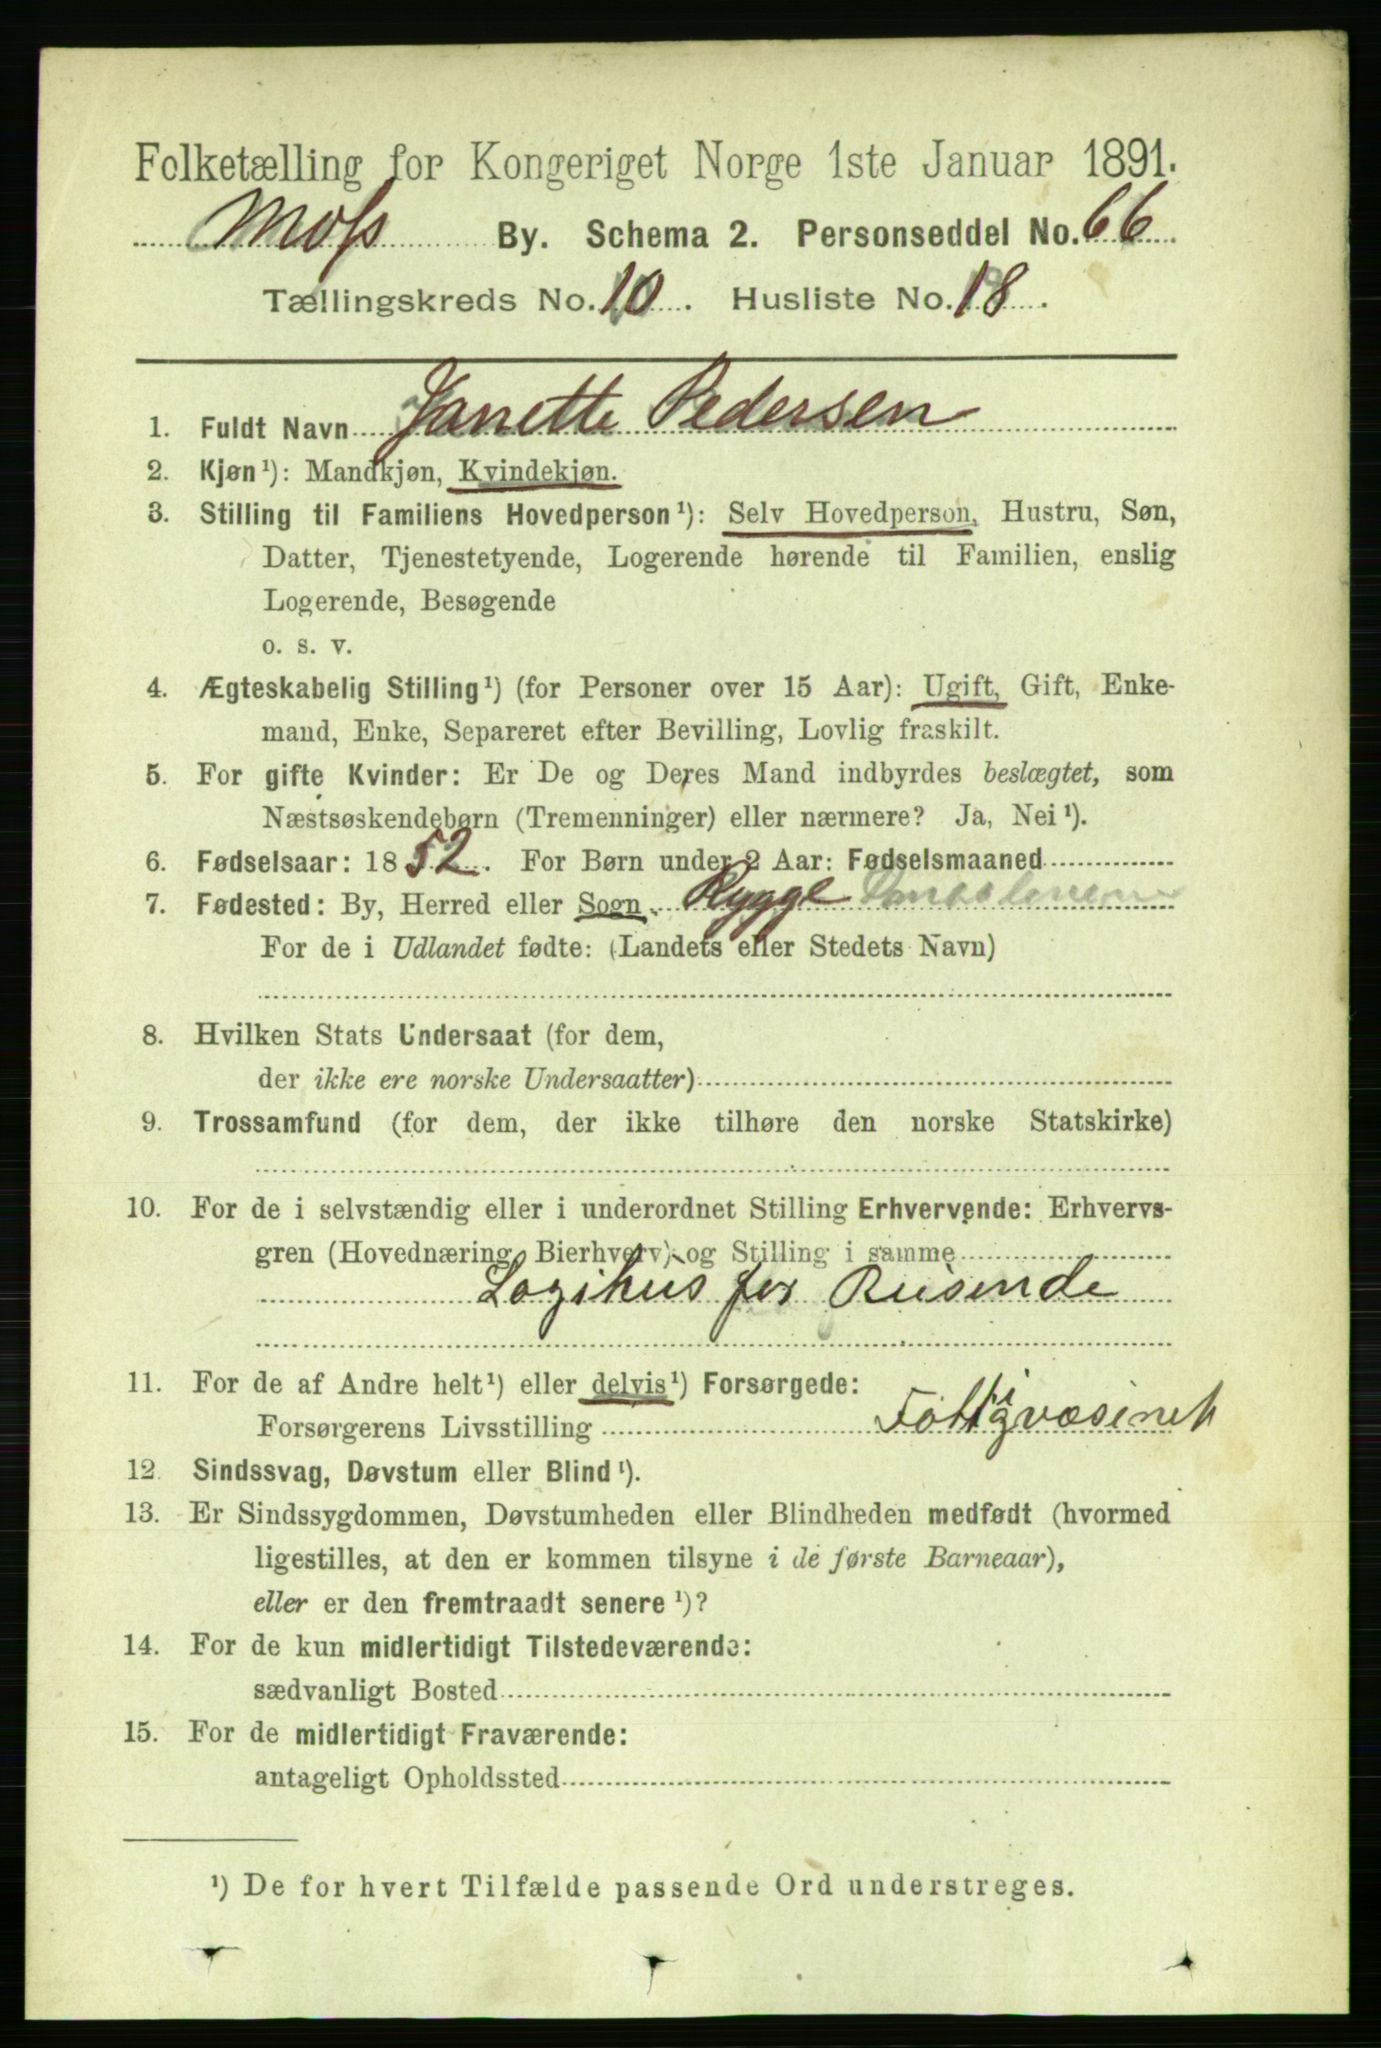 Folketælling for Kongeriget Norge 1ste Januar 1891.
Moss By. Schema 2. Personseddel No. 66
Tællingskreds No. 10. Husliste No. 18.
1. Fuldt Navn Janette Pedersen
2. Kjøn¹): Mandkjøn, Kvindekjøn.
3. Stilling til Familiens Hovedperson¹): Selv Hovedperson, Hustru, Søn,
Datter, Tjenestetyende, Logerende hørende til Familien, enslig
Logerende, Besøgende
o. s. v.
4. Ægteskabelig Stilling¹) (for Personer over 15 Aar): Ugift, Gift, Enke-
mand, Enke, Separeret efter Bevilling, Lovlig fraskilt.
5. For gifte Kvinder: Er De og Deres Mand indbyrdes beslægtet, som
Næstsøskendebørn (Tremenninger) eller nærmere? Ja, Nei¹).
6. Fødselsaar: 1852. For Børn under 2 Aar: Fødselsmaaned
7. Fødested: By, Herred eller Sogn Rygge
For de i Udlandet fødte: (Landets eller Stedets Navn)
8. Hvilken Stats Undersaat (for dem,
der ikke ere norske Undersaatter)
9. Trossamfund (for dem, der ikke tilhøre den norske Statskirke)
10. For de i selvstændig eller i underordnet Stilling Erhvervende: Erhvervs-
gren (Hovednæring, Bierhverv) og Stilling i samme
Logihus for Reisende
11. For de af Andre helt¹) eller delvis¹) Forsørgede:
Forsørgerens Livsstilling Fattigvæsinet
12. Sindssvag, Døvstum eller Blind¹).
13. Er Sindssygdommen, Døvstumheden eller Blindheden medfødt (hvormed
ligestilles, at den er kommen tilsyne i de første Barneaar),
eller er den fremtraadt senere¹)?
14. For de kun midlertidigt Tilstedeværende:
sædvanligt Bosted
15. For de midlertidigt Fraværende:
antageligt Opholdssted
¹) De for hvert Tilfælde passende Ord understreges.